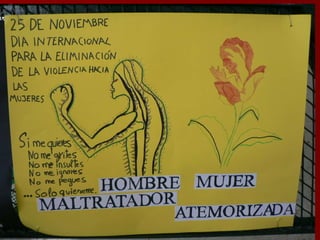 25 DE NOVIEMBRE
DIA INTERNACIONAL
PARA LA ELIMINACIÓN
DE LA VIOLENCIA HACIA
LAS
MUJERES
Si me quieres
No me grites
No me insultes
No me ignores
No me pegues
... Solo quiereme.
HOMBRE MUJER
MALTRATADOR
ATEMORIZADA